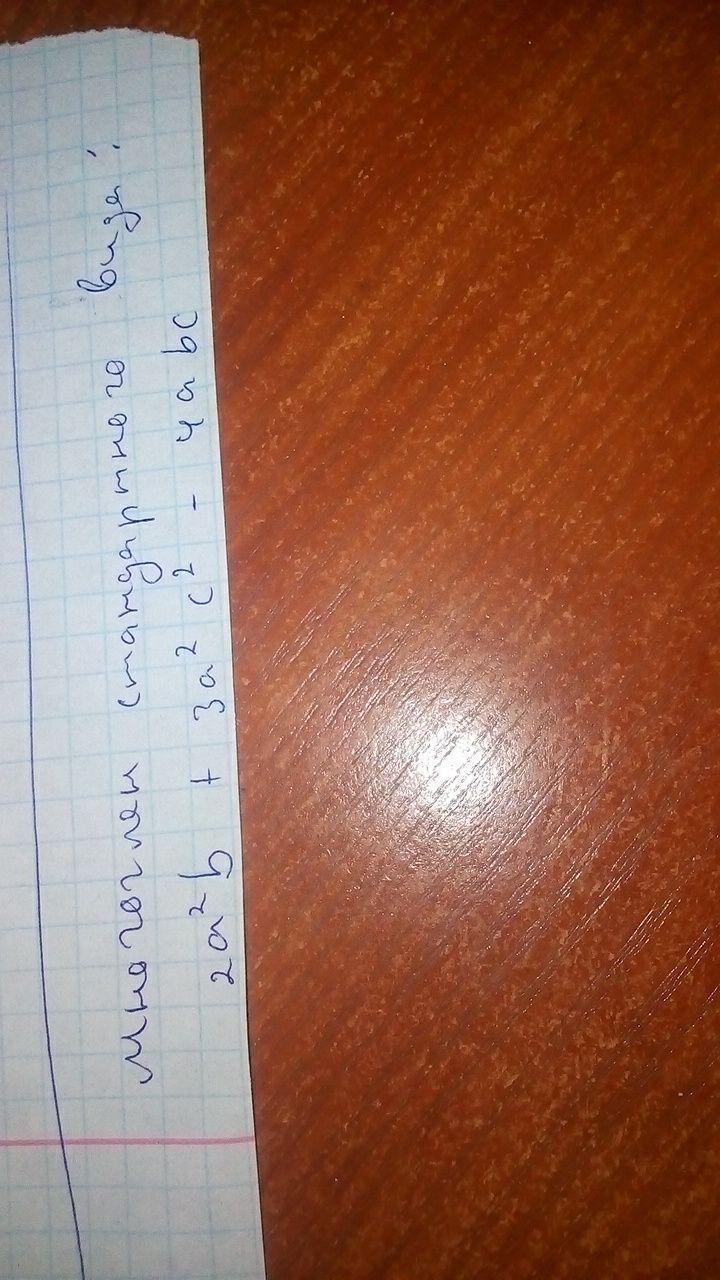 Многочлен стандартного вида:
2a²b + 3a²c² - 4abc